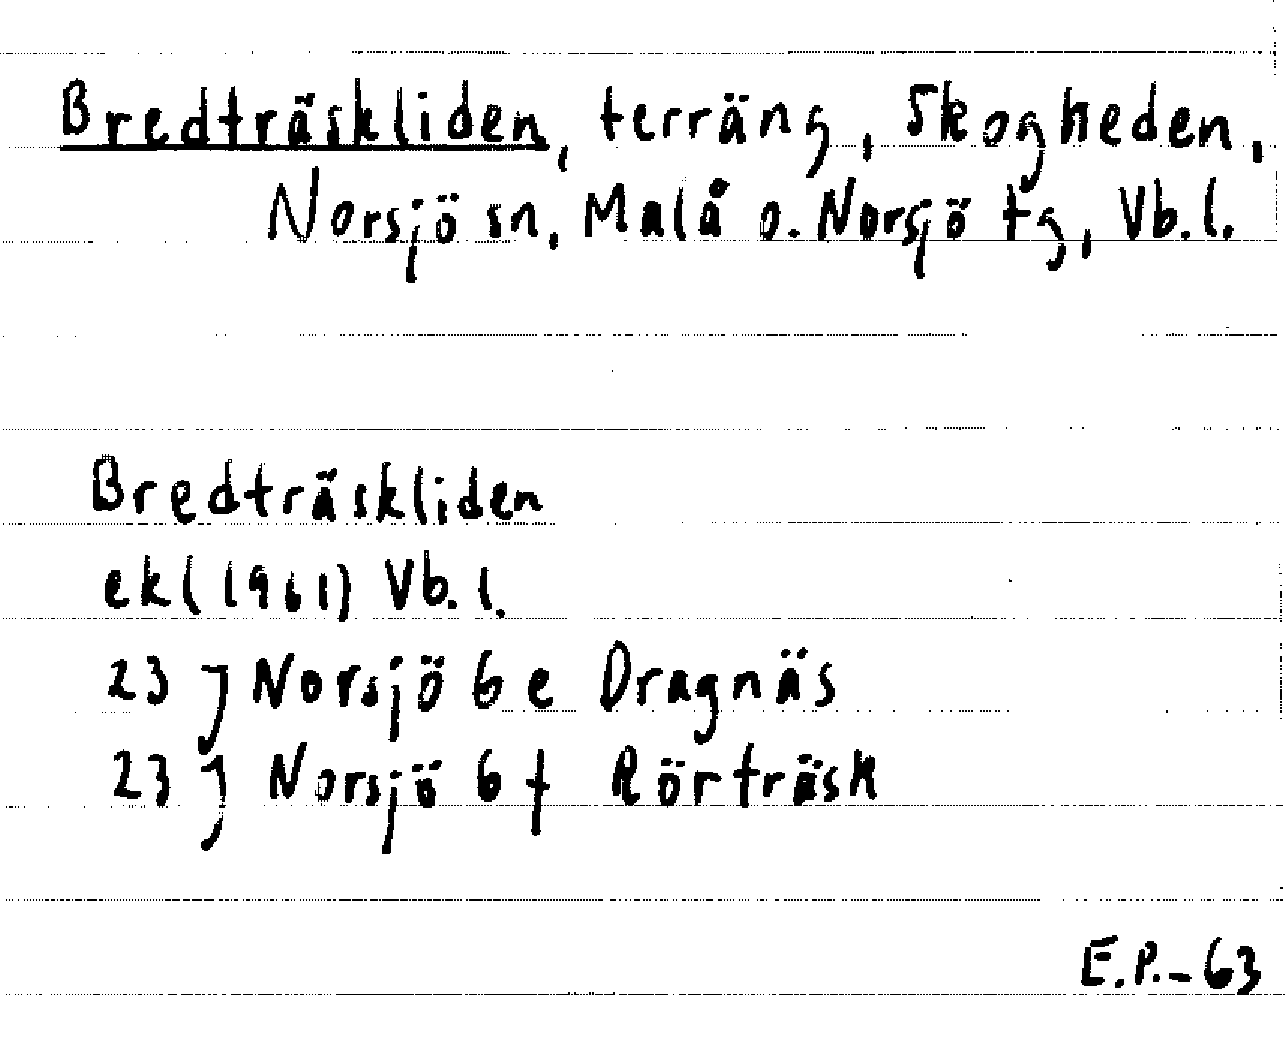 Bredträskliden, terräng, Skogheden,
Norsjö sn, Malå o. Norsjö tg, Vb.l.
Bredträskliden
ekl(1961) Vb.l.
23 J Norsjö 6 e Dragnäs
23 J Norsjö 6 f Rörträsk
E.P.-63